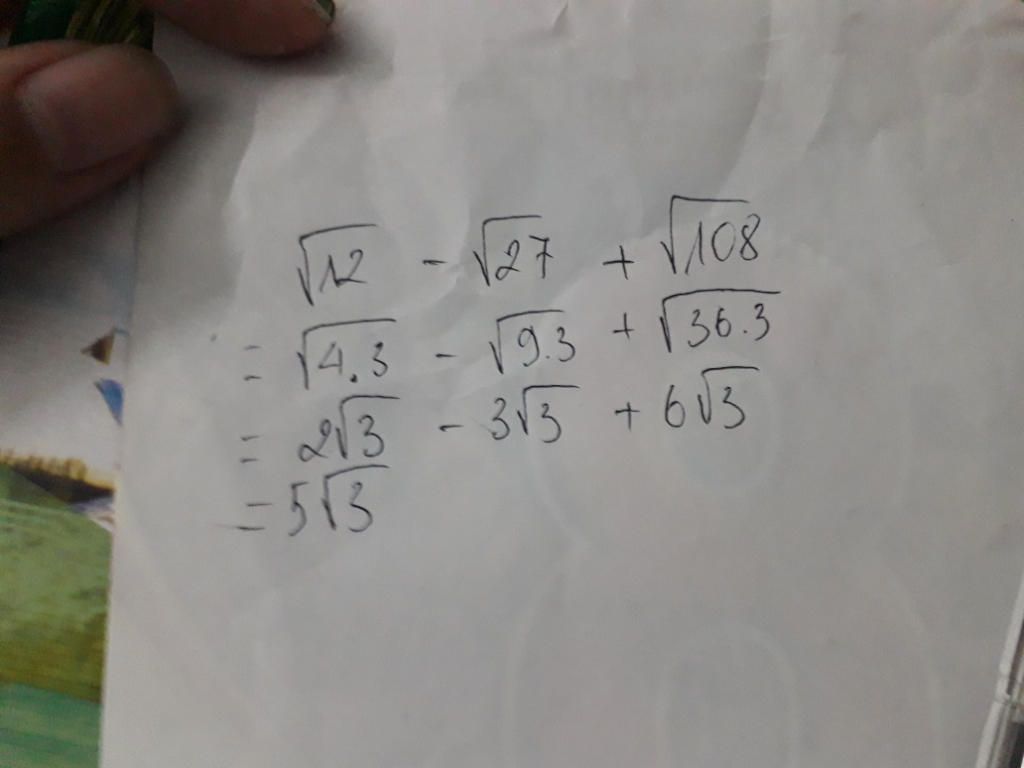 √12 - √27 + √108
= √4.3 - √9.3 + √36.3
= 2√3 - 3√3 + 6√3
= 5√3